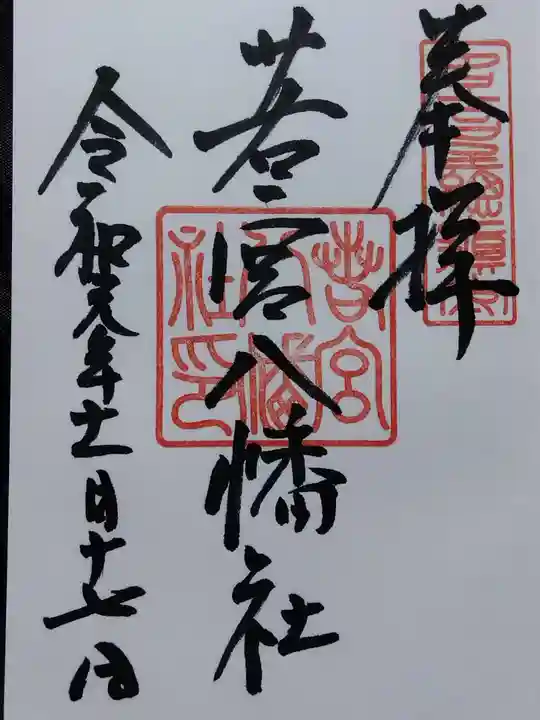 奉拝
若宮八幡社
令和元年十一月十七日
若宮八幡社印